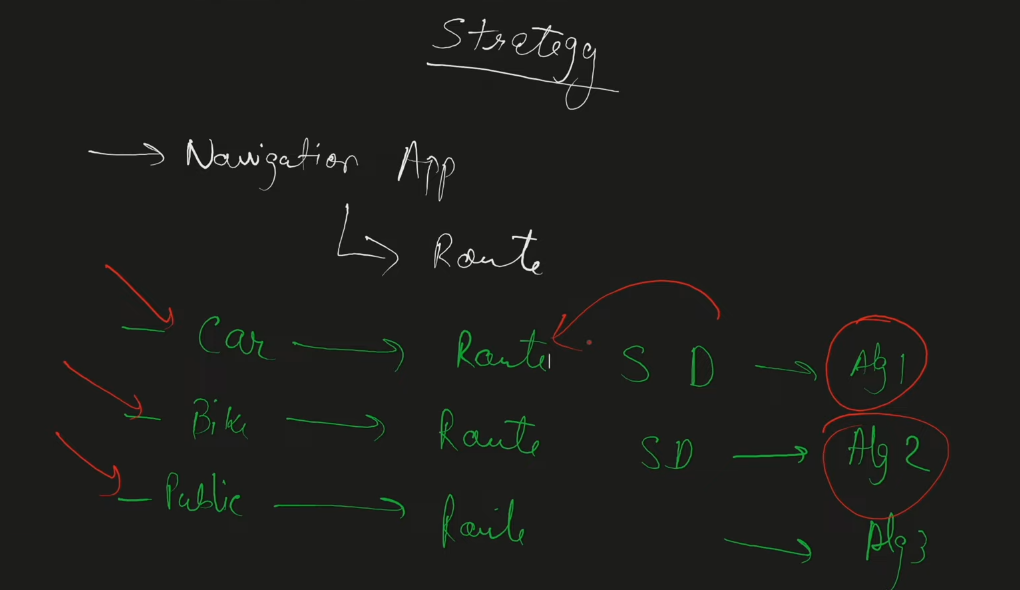 Strategy
→ Navigation App
↳ Route
- Car → Route S D → Alg 1
- Bike → Route SD → Alg 2
- Public → Route → Alg 3